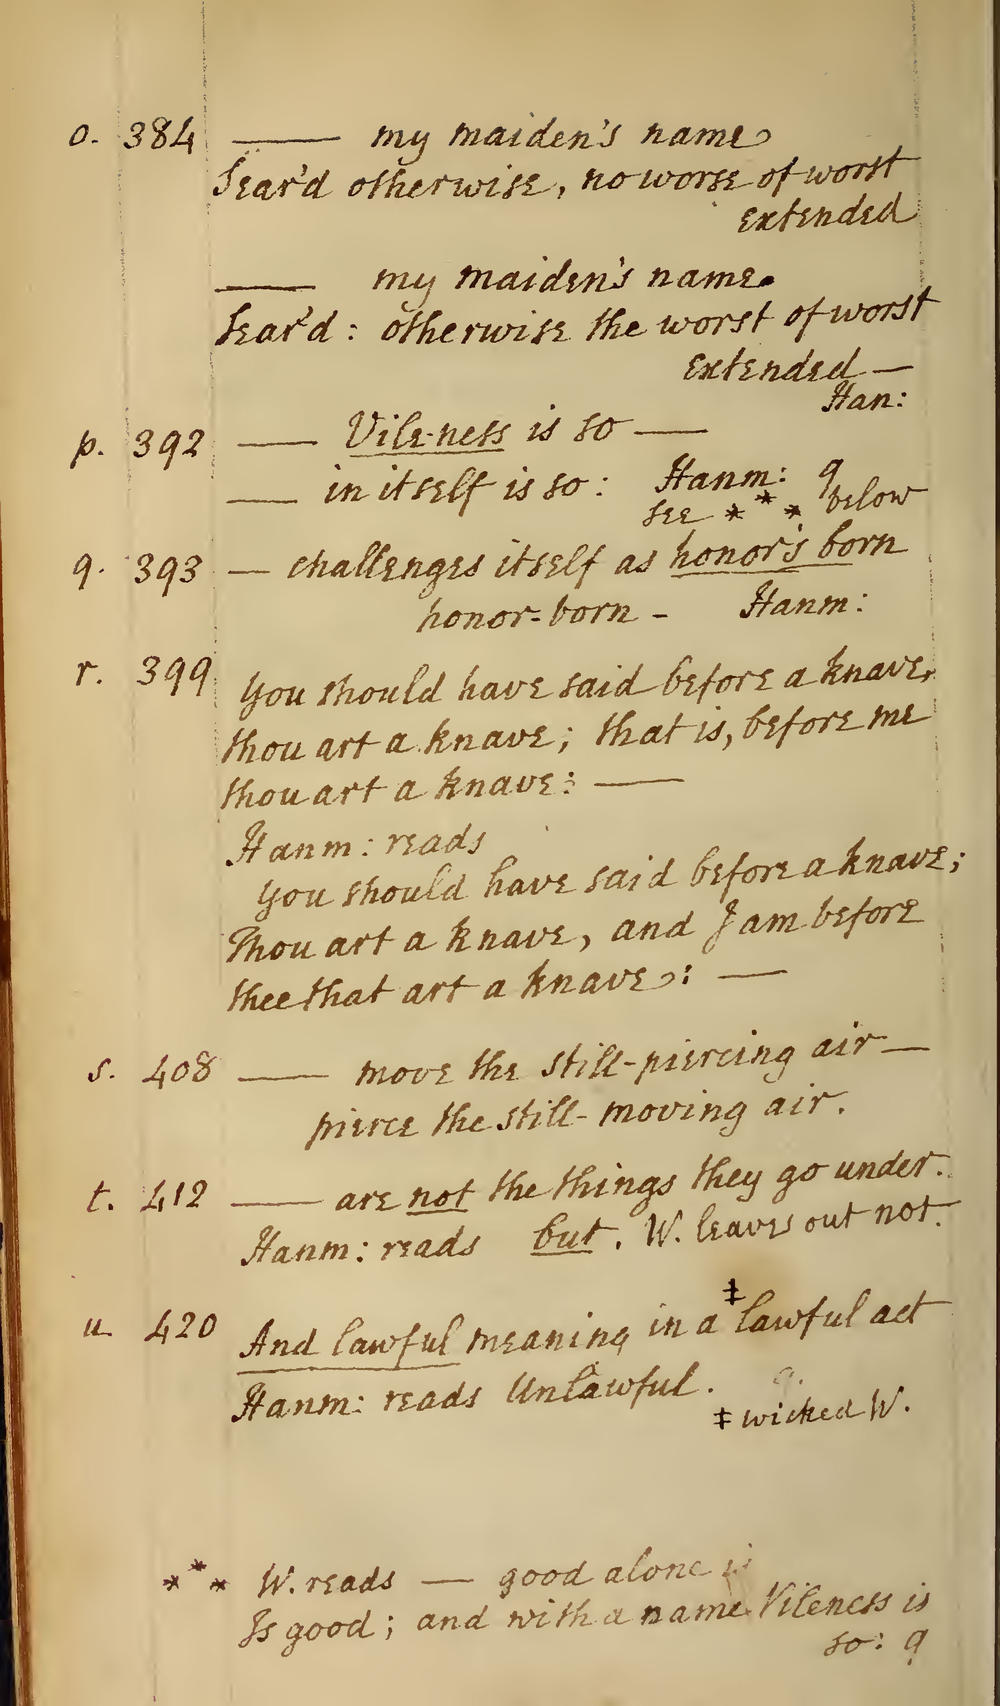 o. 384 —— my maiden's name
Sear'd otherwise, no worse of worst
extended
—— my maiden's name.
Sear'd: otherwise the worst of worst
extended —
Han:
p. 392 —— Vile-ness is so ——
—— in itself is so: Hanm: q
see *** below
q. 393 — challenges itself as honor's born
honor-born - Hanm:
r. 399 You should have said before a knave,
thou art a knave; that is, before me
thou art a knave: ——
Hanm: reads
You should have said before a knave;
Thou art a knave, and I am before
thee that art a knave: ——
s. 408 —— move the still-piercing air —
pierce the still-moving air.
t. 412 —— are not the things they go under.
Hanm: reads but. W. leaves out not.
u 420 And lawful meaning in a ‡ lawful act
Hanm: reads Unlawful. q.
‡ wicked W.
*** W. reads — good alone is
Is good; and with a name Vileness is
so: q